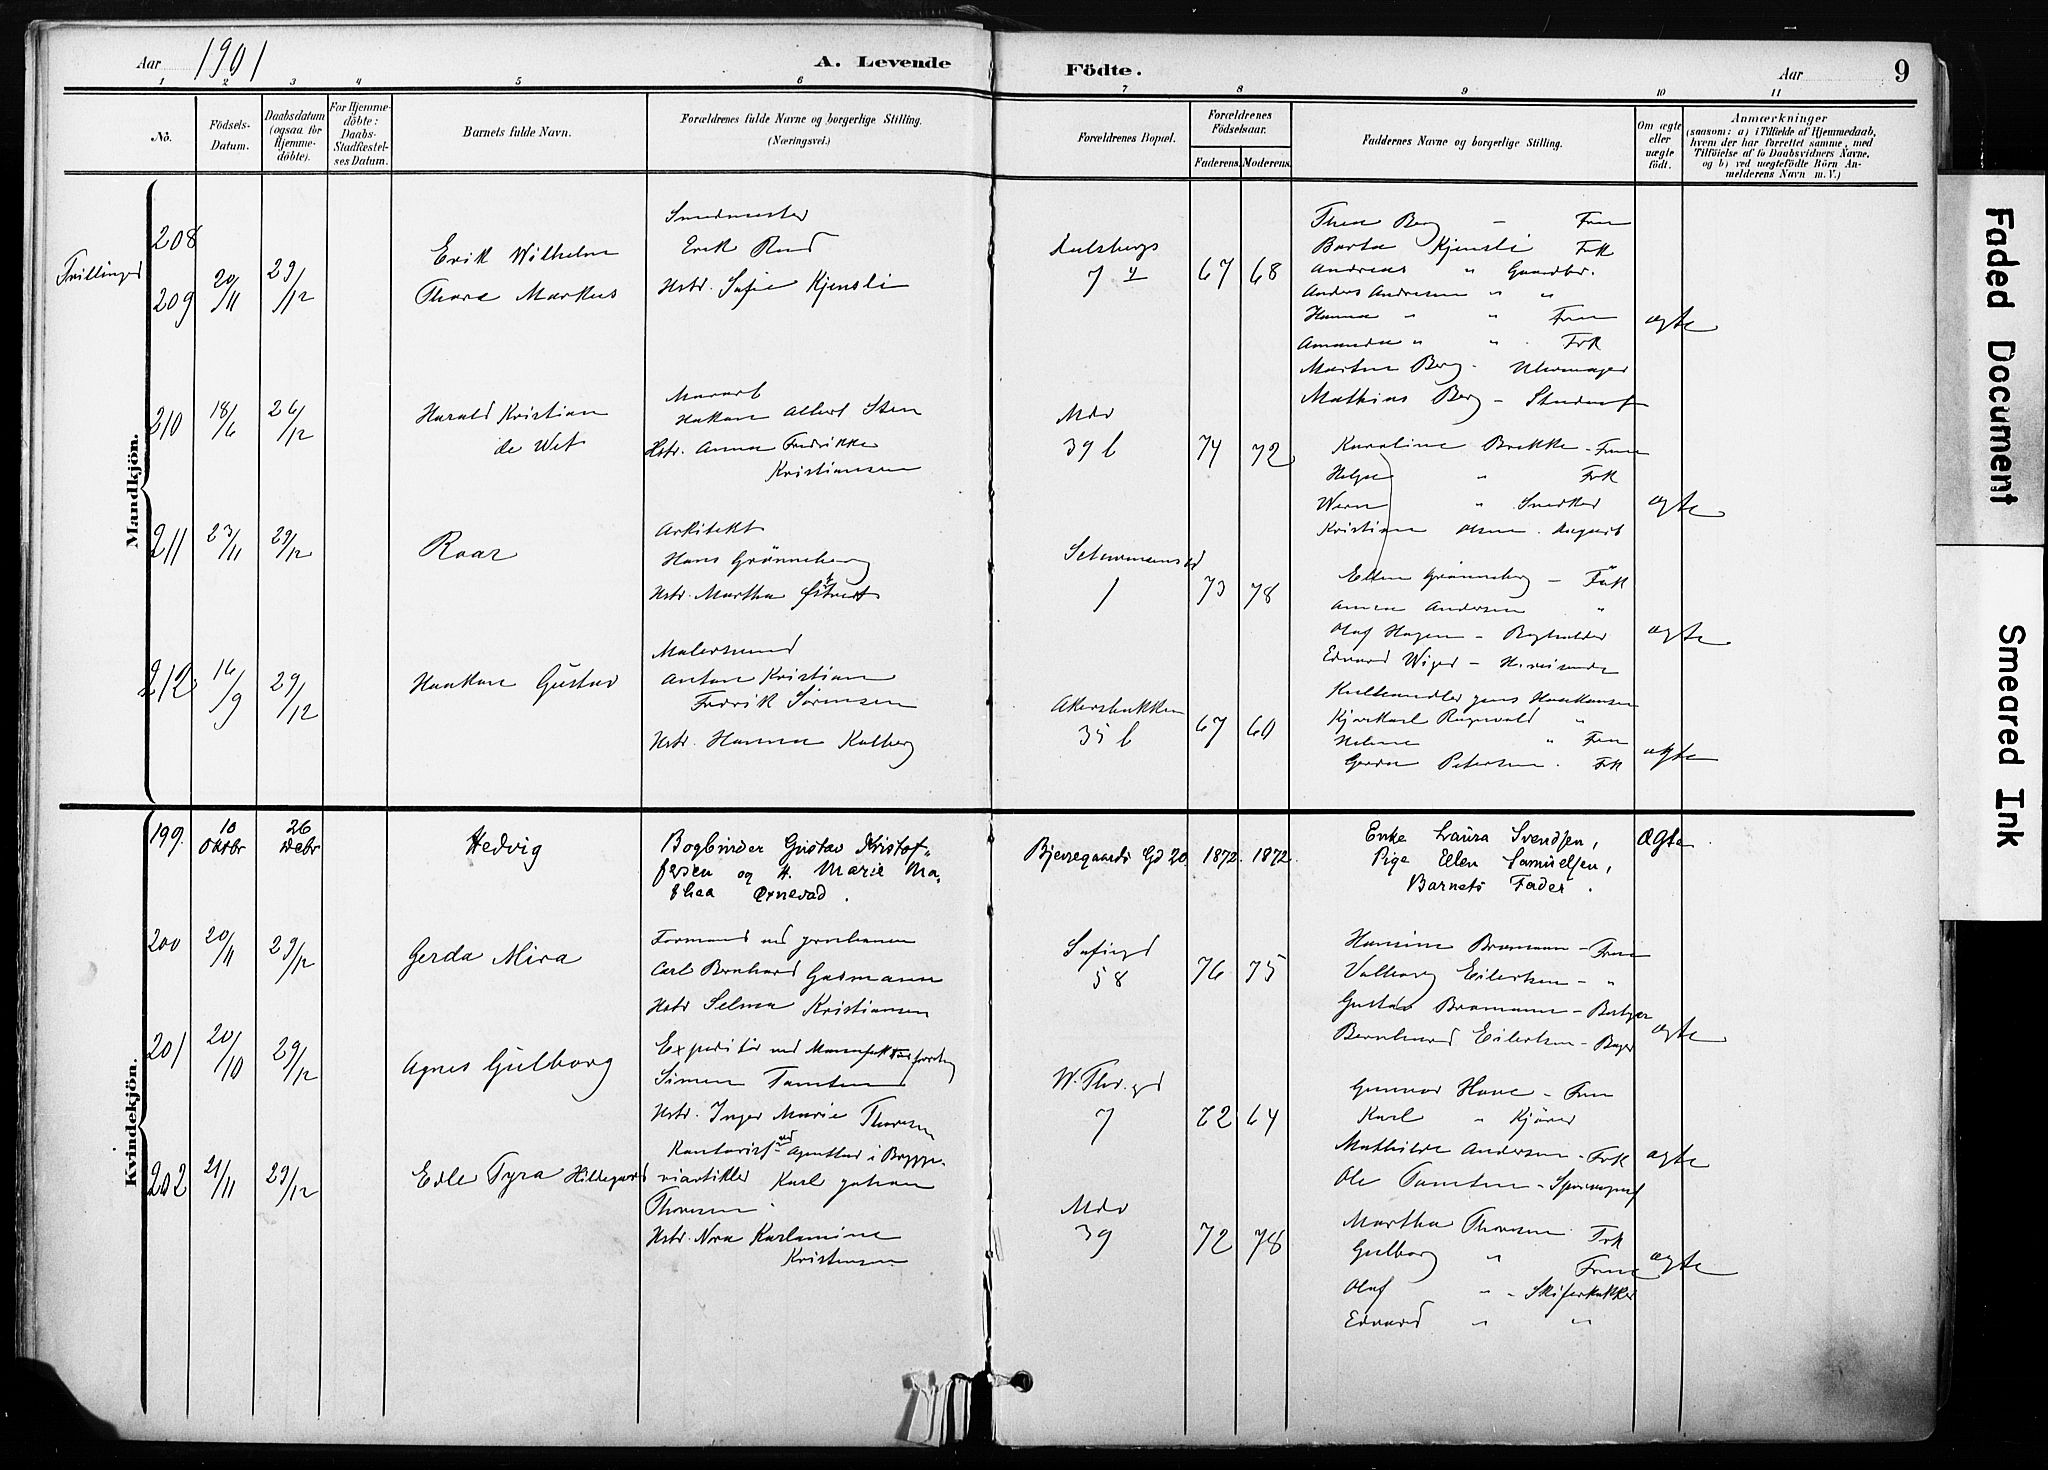 Aar 1901 A. Levende Födte. Aar 9
1 2 3 4 5 6 7 8 9 10 11
No.
Födsels-Datum.
Daabsdatum (ogsaa for Hjemme-döbte).
For Hjemme-döbte: Daabs-Stadfæstel-ses Datum.
Barnets fulde Navn.
Forældrenes fulde Navne og borgerlige Stilling.
(Næringsvei.)
Forældrenes Bopæl.
Forældrenes Födselsaar.
Faderens. Moderens.
Faddernes Navne og borgerlige Stilling.
Om ægte eller uægte födt.
Anmærkninger
(saasom: a) i Tilfælde af Hjemmedaab,
hvem der har forrettet samme, med
Tilföielse af to Daabsvidners Navne,
og b) ved uægtefödte Börn An-
melderens Navn m. V.)
Mandkjön.
Tvillinger
208
209
20/11 29/12
Erik Wilhelm
Thore Markus
Smedmester
Erik Rud
Hstr. Sofie Kjensli
7 67 68
Thea Berg - Frue
Berta Kjensli Frk
Andreas " Gaardbr.
Anders Andresen " "
Hanna " " Frue
Amanda " " Frk
Martin Berg - Uhrmager
Mathias Berg - Student
ægte
210 18/6 26/12
Harald Kristian
de Wet
Hakon Albert Sten
Hstr. Anna Fredrikke
Kristiansen
39 b 74 72
Karoline Brekke - Frue
Helga " Frk
" Snedker
Kristian Olsen
ægte
211 23/11 29/12
Roar
Arkitekt
Hans Grønneberg
Hstr. Martha
1 73 78
Ellen Grønneberg - Frk
Anna Andersen "
Olaf Hagen - Bogholder
Edvard
ægte
212 16/9 29/12
Haakon Gustav
Malersvend
Anton Kristian
Fredrik Sørensen
Hstr. Hanna Kalberg
Akersbakken
35 b 67 60
Kulhandler Jens Haakonsen
Kjørekarl Ragnvald "
" Frue
Gerda Petersen. Frk
ægte
Kvindekjön.
199. 10 Oktbr 26 Debr
Hedvig
Bogbinder Gustav Kristof-
fersen og H. Marie Ma-
thea Ørnevad.
Bjerregaards Gd 20 1872. 1872.
Enke Laura Svendsen,
Pige Ellen Samuelsen,
Barnets Fader.
Ægte
200 20/11 29/12
Gerda Mira
Formand ved
Carl Bernhard Gasmann
Hstr Selma Kristiansen
Sofiegd
58 76 75
Hansine Bromann - Frue
Valborg Eilertsen - "
Gustav Bromann
Bernhard Eilertsen - Bager
ægte
201 20/10 29/12
Agnes Gulborg
Expeditør ved
Simen Tamten
Hstr. Inger Marie Thoresen
W. Thr. gd
7 72 64
Gunvor - Frue
Karl " Kjører
Mathilde Andersen - Frk
Ole Tamten
ægte
202 21/11 29/12
Edle Tyra Hildegard
Kontorist ved Agentur i Bygge-
artikler Karl Johan
Thoresen
Hstr. Nora Karlamine
Kristensen
39 72 78
Martha Thoresen Frk
Gulborg " Frue
Olaf " - Skifertækker
Edvard " "
ægte
Faded Document
Smeared Ink